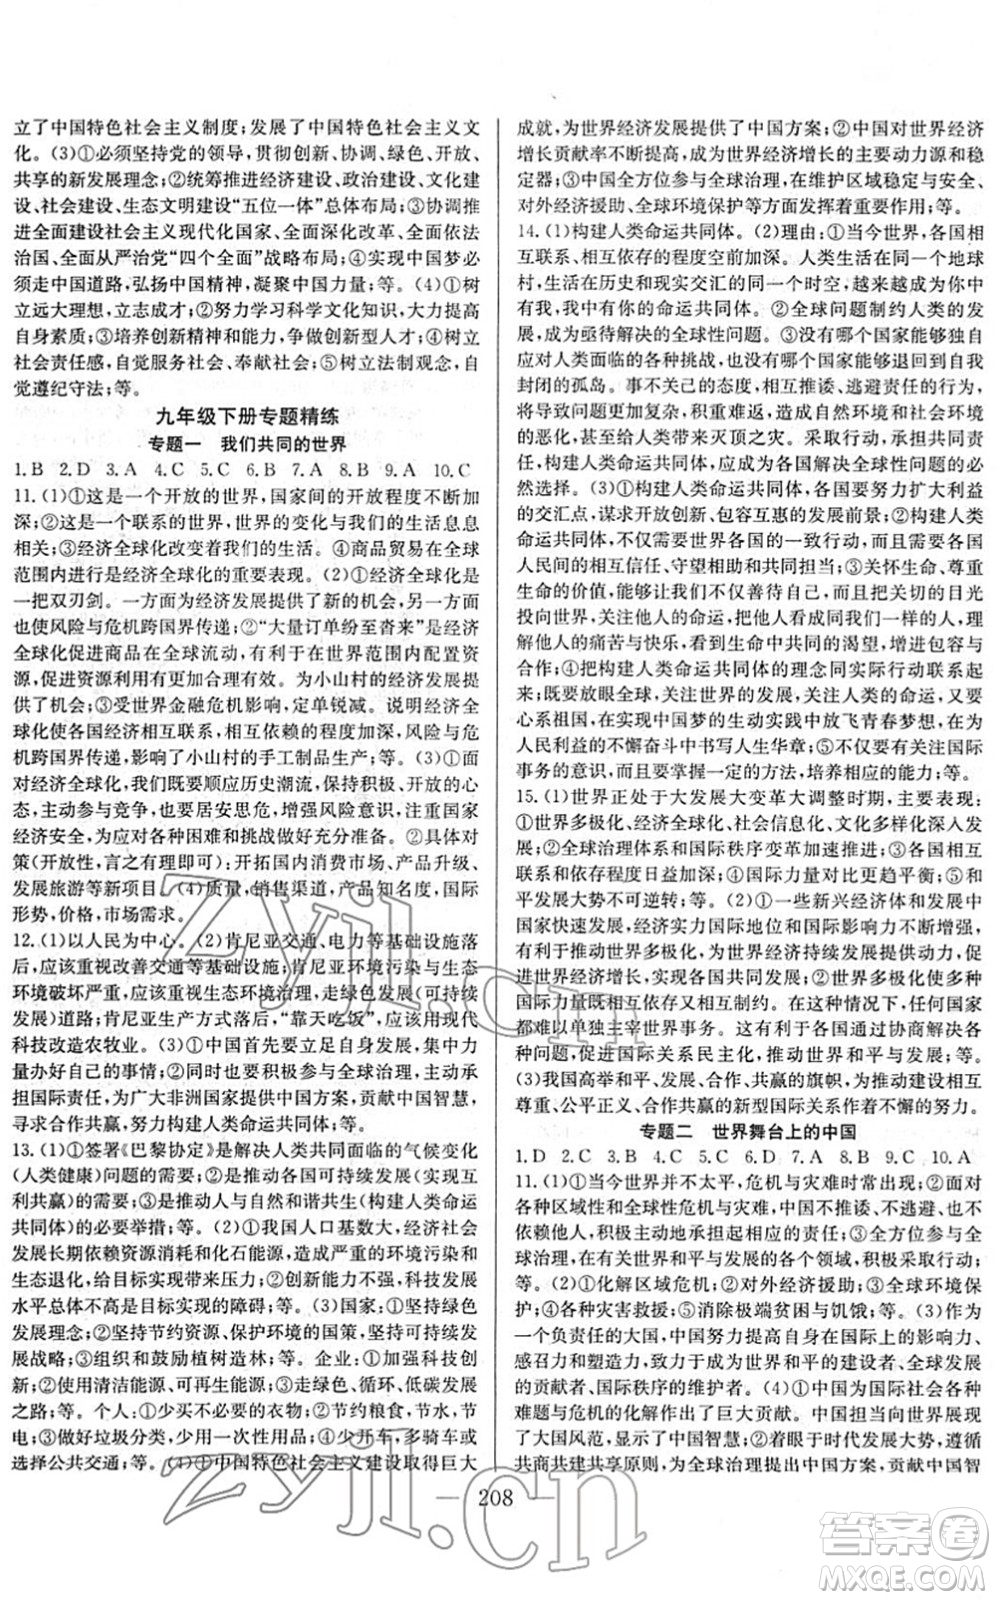 立了中国特色社会主义制度;发展了中国特色社会主义文
化。(3)①必须坚持党的领导,贯彻创新、协调、绿色、开放、
共享的新发展理念;②统筹推进经济建设、政治建设、文化建
设、社会建设、生态文明建设“五位一体”总体布局;③协调推
进全面建设社会主义现代化国家、全面深化改革、全面依法
治国、全面从严治党“四个全面”战略布局;④实现中国梦必
须走中国道路,弘扬中国精神,凝聚中国力量;等。(4)①树
立远大理想,立志成才;②努力学习科学文化知识,大力提高
自身素质;③培养创新精神和能力,争做创新型人才;④树立
社会责任感,自觉服务社会、奉献社会;⑤树立法制观念,自
觉遵纪守法;等。
九年级下册专题精练
专题一 我们共同的世界
1.B 2.D 3.A 4.C 5.C 6.B 7.A 8.B 9.A 10.C
11.(1)①这是一个开放的世界,国家间的开放程度不断加
深;②这是一个联系的世界,世界的变化与我们的生活息息
相关;③经济全球化改变着我们的生活。④商品贸易在全球
范围内进行是经济全球化的重要表现。(2)①经济全球化是
一把双刃剑。一方面为经济发展提供了新的机会,另一方面
也使风险与危机跨国界传递;②“大量订单纷至沓来”是经济
全球化促进商品在全球流动,有利于在世界范围内配置资
源,促进资源利用有更加合理有效。为小山村的经济发展提
供了机会;③受世界金融危机影响,订单锐减。说明经济全
球化使各国经济相互联系、相互依存不断加深,风险与危
机跨国界传递,影响了小山村的手工制品生产;等。(3)①面
对经济全球化,我们既要顺应历史潮流,保持积极、开放的心
态,主动参与竞争,也要居安思危,增强风险意识,注重国家
经济安全,为应对各种困难和挑战做好充分准备。②具体对
策(开放性,言之有理即可):开拓国内消费市场、产品升级、
发展旅游等新项目。(4)质量,销售渠道,产品知名度,国际
形势,价格,市场需求。
12.(1)以人民为中心。(2)肯尼亚交通、电力等基础设施落
后,应该重视改善交通等基础设施;肯尼亚环境污染与生态
环境破坏严重,应该重视生态环境治理,走绿色发展(可持续
发展)道路;肯尼亚生产方式落后,“靠天吃饭”,应使用现代
科技改造农牧业。(3)①中国首先要立足自身发展,集中力
量办好自己的事情;②同时也要积极参与全球治理,主动承
担国际责任,为广大非洲国家提供中国方案,贡献中国智慧,
寻求合作共赢,努力构建人类命运共同体;等。
13.(1)①签署《巴黎协定》是解决人类共同面临的气候变化
(人类健康)问题的需要;②是实现可持续发展(实现互
利共赢)的需要;③是推动人与自然和谐共生(构建人类命运
共同体)的必要举措;等。(2)①我国人口基数大,经济社会
发展长期依赖资源消耗和化石能源,造成严重的环境污染和
生态退化,给可持续发展带来压力;②创新能力不强,科技发展
水平总体不高是目标实现的障碍;等。(3)国家:①坚持绿色
发展理念;②坚持节约资源、保护环境的国策,实施可持续发
展战略;③组织和鼓励植树造林;等。企业:①加强科技创
新;②使用清洁能源、可再生能源;③走绿色、循环、低碳发展
之路;等。个人:①少买不必要的衣物;②节约粮食,节水,节
电;③做好垃圾分类,少用一次性餐具;④少开车,多骑车或
选择公共交通;等。(4)①中国特色社会主义建设取得巨大
成就,为世界经济发展提供了中国方案;②中国对世界经济
增长贡献率不断提高,成为世界经济增长的主要动力源和稳
定器;③中国全方位参与全球治理,在维护区域稳定与安全、
对外经济援助、全球环境保护等方面发挥着重要作用;等。
14.(1)构建人类命运共同体。(2)理由:①当今世界,各国相
互联系、相互依存的程度空前加深。人类生活在同一个地球
村,生活在历史和现实交汇的同一个时空,越来越成为你中
有我、我中有你的命运共同体。②全球问题制约人类的发
展,成为亟待解决的全球性问题。③没有哪个国家能够独自
应对人类面临的各种挑战,也没有哪个国家能够退回到自我
封闭的孤岛。事不关己的态度,相互推诿、逃避责任的行为,
将导致问题更加复杂,积重难返,造成自然环境和社会环境
的恶化,甚至给人类带来灭顶之灾。采取行动,承担共同责
任,构建人类命运共同体,应成为各国解决全球性问题的必
然选择。(3)①构建人类命运共同体,各国要努力扩大利益
的交汇点,谋求开放创新、包容互惠的发展前景;②构建人类
命运共同体,不仅需要世界各国的一致行动,而且需要各国
人民间的相互信任、守望相助和共同担当;③关怀生命、尊重
生命是人类共通的情感。我们不仅善待自己,也把关切的目光
投向世界,关注他人的命运,把他人看作与自己一样的存在,理
解他人的痛苦与快乐,看到生命中共同的渴望,增进包容与
合作;④把构建人类命运共同体的理念同实际行动联系起
来;既要放眼全球,关注世界的发展,关注人类的命运,又要
心系祖国,在实现中国梦的生动实践中放飞青春梦想,在为
人民利益的不懈奋斗中书写人生华章;⑤既要有关注国际
事务的意识,而且要掌握一定的方法,培养相应的能力;等。
15.(1)世界正处于大发展大变革大调整时期,主要表现:
①世界多极化、经济全球化、社会信息化、文化多样化深入发
展;②全球治理体系和国际秩序变革加速推进;③各国相互
联系和依存日益加深;④国际力量对比更趋平衡;⑤和
平发展大势不可逆转;等。(2)①一些新兴经济体和发展中
国家快速发展,经济实力、国际地位和国际影响力不断增强,
有利于推动世界多极化,为世界经济持续发展提供动力,促
进世界经济增长,实现各国共同发展;②世界多极化使多种
国际力量既相互依存又相互制约。在这种情况下,任何国家
都难以单独主宰世界事务。这有利于各国通过协商解决各
种问题,促进国际关系民主化,推动世界和平与发展;等。
(3)我国高举和平、发展、合作、共赢的旗帜,为推动建设相互
尊重、公平正义、合作共赢的新型国际关系作着不懈的努力。
专题二 世界舞台上的中国
1.D 2.C 3.C 4.B 5.C 6.D 7.A 8.B 9.C 10.A
11.(1)①当今世界并不太平,危机与灾难时常出现;②面对
各种区域性和全球性的灾难,中国不推诿、不逃避、也不
依赖他人,积极主动地承担起相应的责任;③全方位参与全
球治理,在有关世界和平与发展的各个领域,积极采取行动;
等。(2)①化解区域危机;②对外经济援助;③全球环境保
护;④各种灾害救援;⑤消除极端贫困与饥饿;等。(3)作为
一个负责任的大国,中国努力提高自身在国际上的影响力、
感召力和塑造力,成为世界和平的建设者、全球发展
的贡献者、国际秩序的维护者。(4)①中国为国际社会各种
难题与危机的化解作出了巨大贡献。中国担当向世界展现
了大国风范,显示了中国智慧;②着眼于时代发展大势,遵循
共商共建共享原则,为全球治理提出中国方案,贡献中国智
208
zyjl.cn
zyjl.cn
答案卷
MXQE.COM